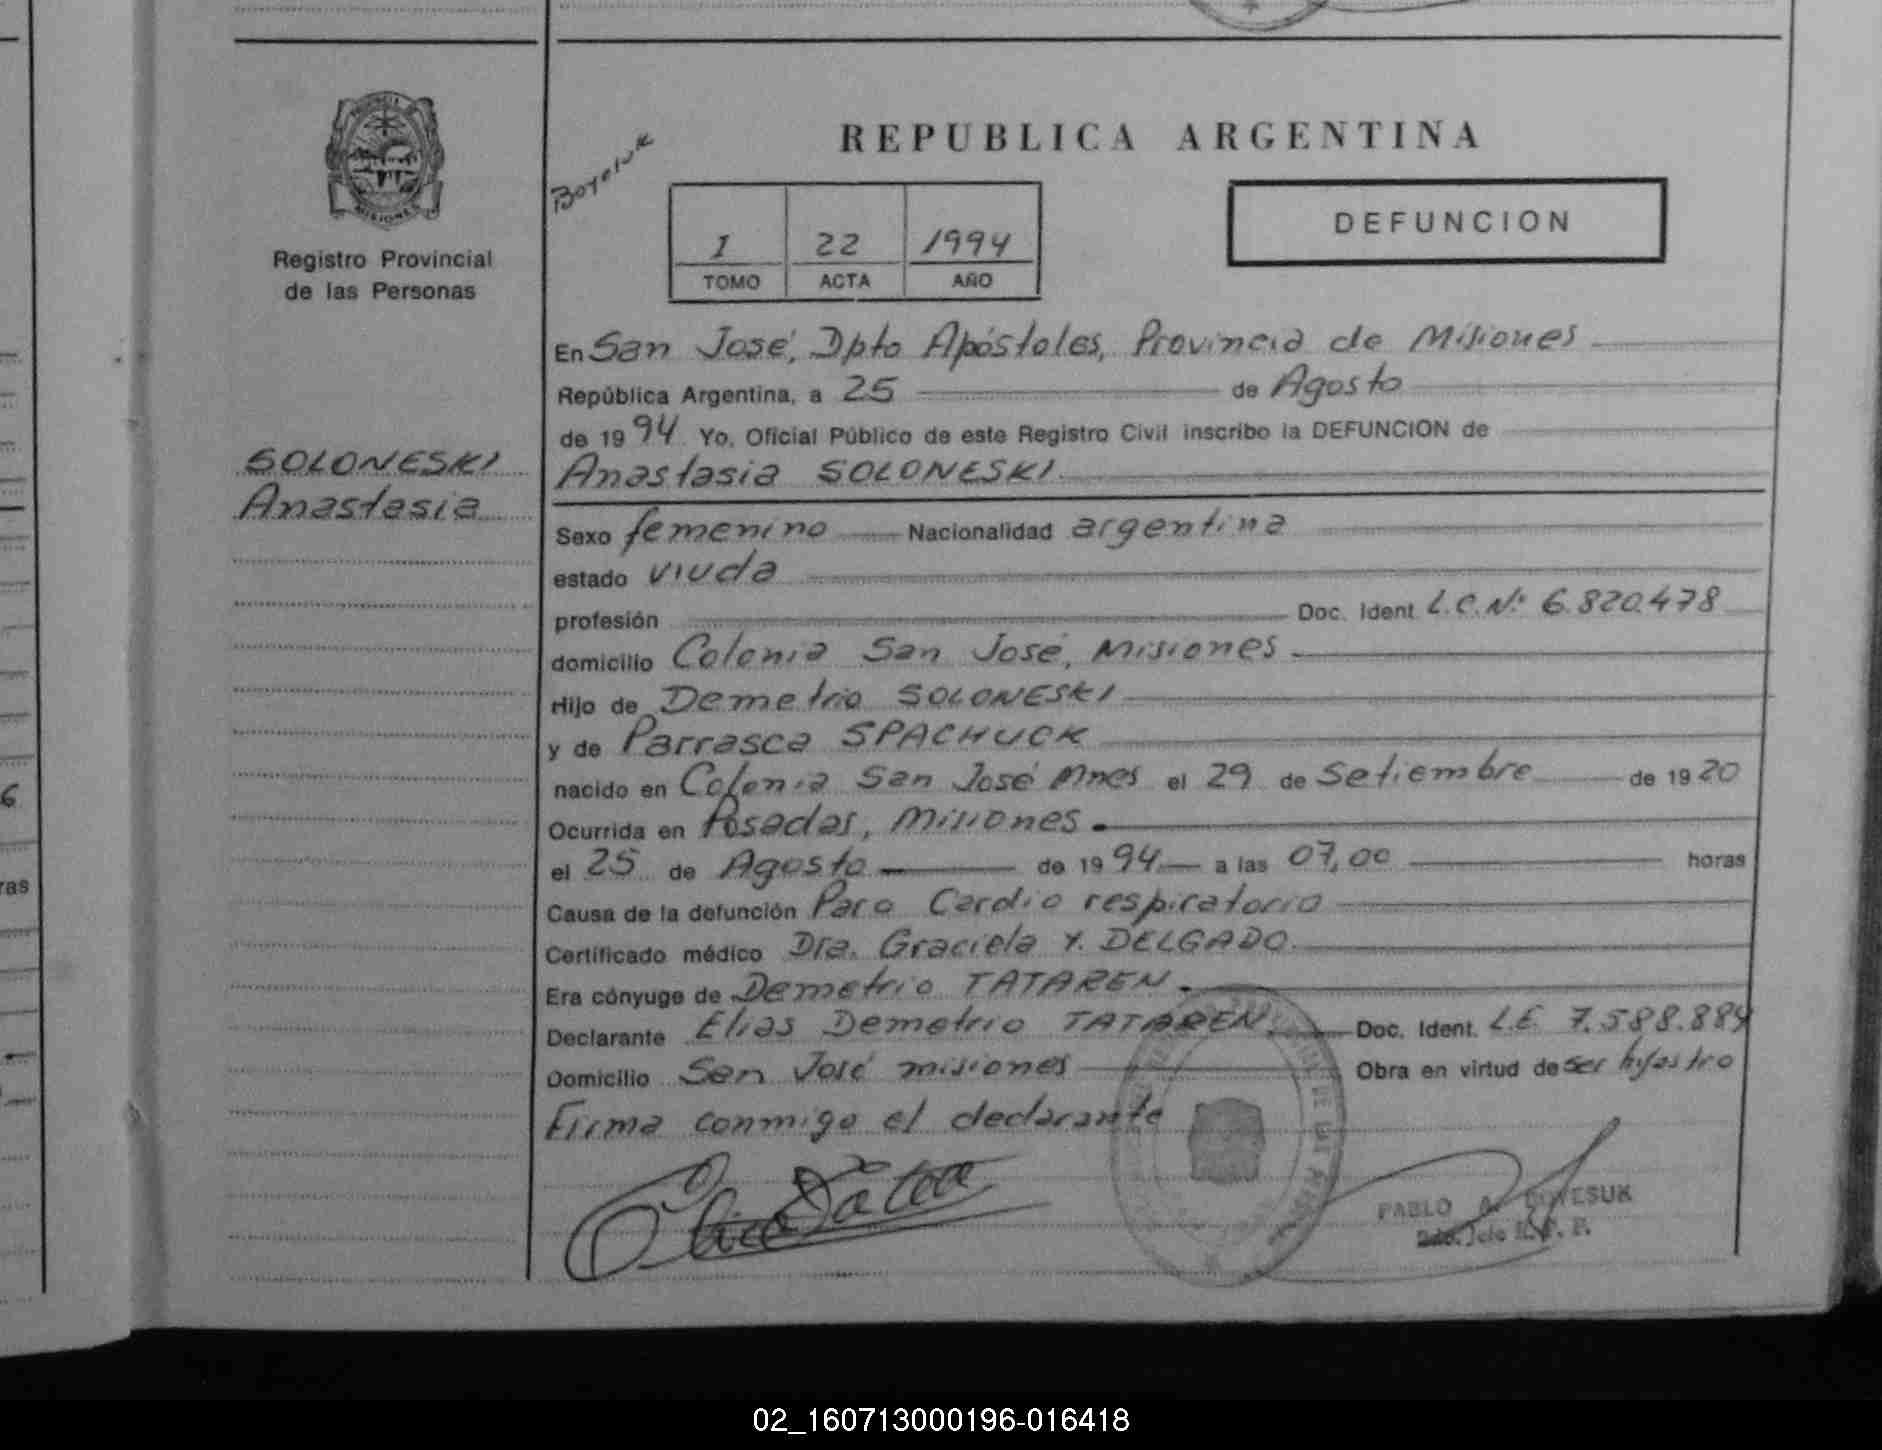 REPUBLICA ARGENTINA
DEFUNCION
1 22 1994
TOMO ACTA AÑO
Registro Provincial
de las Personas
MISIONES
SOLONESKI
Anastasia
En San José, Dpto Apóstoles, Provincia de Misiones
República Argentina, a 25 de Agosto
de 1994 Yo, Oficial Público de este Registro Civil inscribo la DEFUNCION de
Anastasia SOLONESKI
Sexo femenino Nacionalidad argentina
estado viuda
profesión Doc. Ident. L.C.Nº 6.820.478
domicilio Colonia San José, Misiones
Hijo de Demetrio SOLONESKI
y de Parrasca SPACHUCK
nacido en Colonia San José Mnes el 29 de Setiembre de 1920
Ocurrida en Posadas, Misiones.
el 25 de Agosto de 1994 a las 07,00 horas
Causa de la defunción Paro Cardio respiratorio
Certificado médico Dra. Graciela Y. DELGADO.
Era cónyuge de Demetrio TATAREN.
Declarante Elias Demetrio TATAREN. Doc. Ident. L.E. 7.588.884
Domicilio San José misiones Obra en virtud de ser hijastro
Firma conmigo el declarante
PABLO A.
2do. Jefe R. P. P.
6
ras
02_160713000196-016418